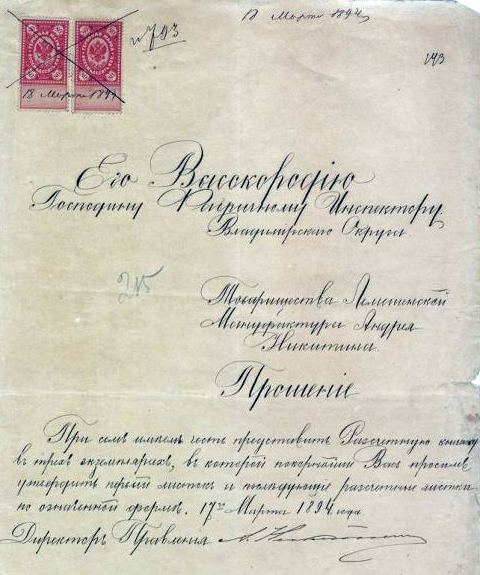 18 Марта 1894
№ 793
193
18 Марта 1894
Его Высокородію
Господину Фабричному Инспектору
Владимірскаго Округа
215
Товарищества Лемешенской
Мануфактуры Андрея
Никитина
Прошеніе
При семъ имѣемъ честь представить Разсчетную книжку
въ трехъ экземплярахъ, въ которой покорнѣйше Васъ просимъ
утвердить первый листокъ и послѣдующіе разсчетные листки
по означенной формѣ. 17го Марта 1894 года
Директоръ Правленія